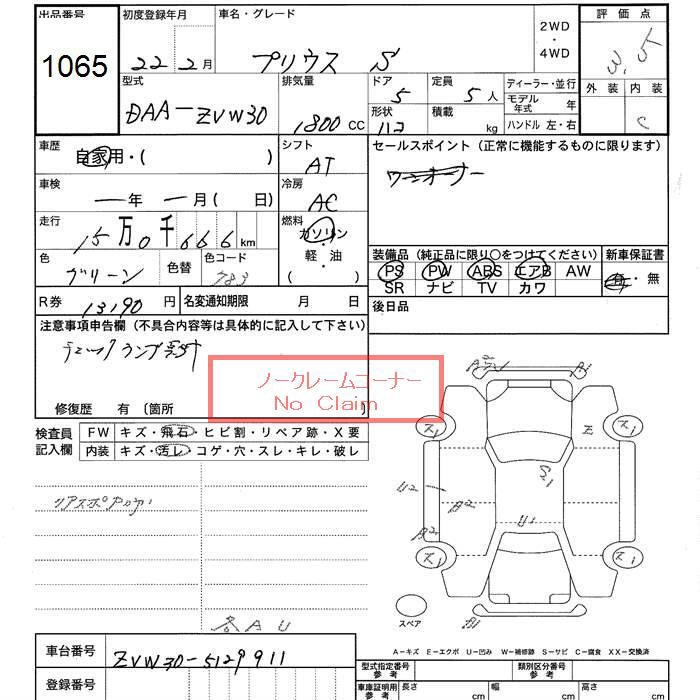 出品番号 初度登録年月 車名・グレード 2WD・4WD 評価点
1065 22年2月 プリウス S 3.5
型式 排気量 ドア 定員 ディーラー・並行 外装 内装
DAA-ZVW30 1800CC 5 5人 モデル年式 年 C
形状 積載 ハンドル 左・右
112 kg
車歴 自家用・( ) シフト セールスポイント (正常に機能するものに限ります)
AT ワンオーナー
車検 ー年 ー月( 日) 冷房
AC
走行 15万0千666km 燃料
ガソリン・軽・油
( )
色 グリーン 色替 色コード 783
装備品 (純正品に限り○をつけてください) 新車保証書
PS PW ABS エアB AW 有・無
SR ナビ TV カワ
R券 13190円 名変通知期限 月 日 後日品
注意事項申告欄 (不具合内容等は具体的に記入して下さい)
ノークレームコーナー
No Claim
修復歴 有 〔箇所 〕
検査員記入欄 FW キズ・飛石・ヒビ割・リペア跡・X要
内装 キズ・汚レ・コゲ・穴・スレ・キレ・破レ
A2 A1
ス1 E ス1
S1
U2 A2
U1
A2
ス1 ス1
A1
AU
スペア
A-キズ E-エクボ U-凹み W-補修跡 S-サビ C-腐食 XX-交換済
車台番号 ZVW30-5129911
型式指定番号 参考 類別区分番号 参考
登録番号
車庫証明用 参考 長さ cm 幅 cm 高さ cm